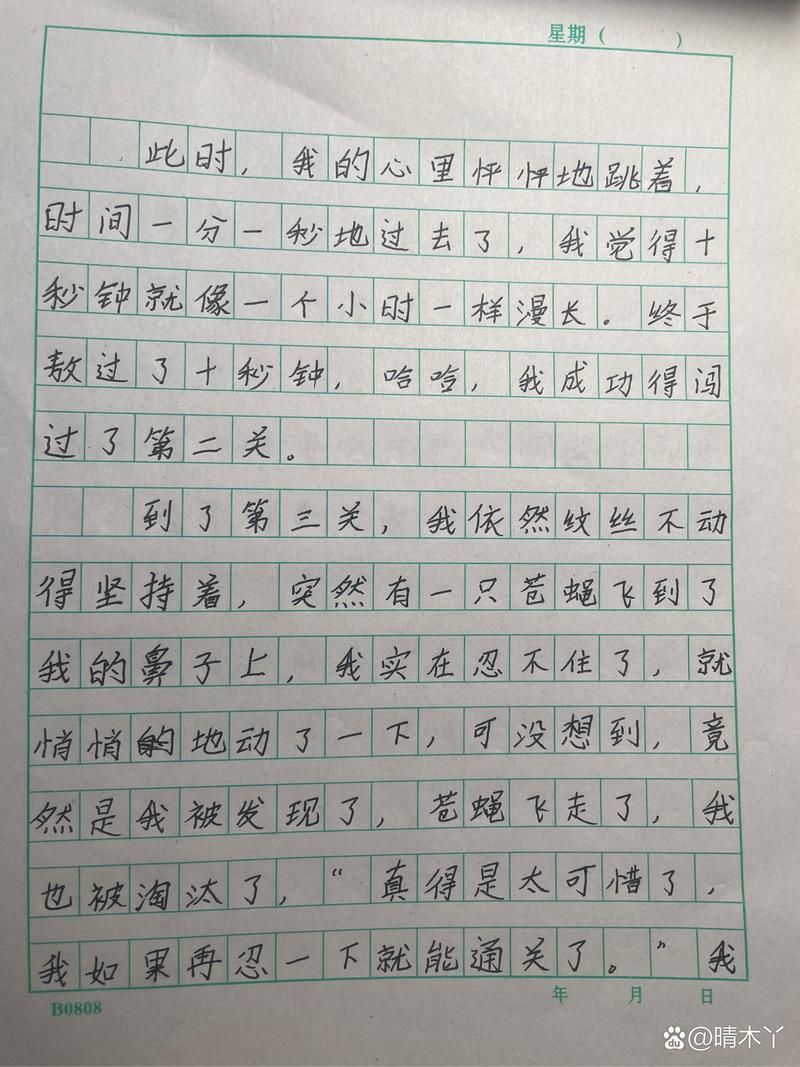 星期（ ）
此时，我的心里怦怦地跳着，
时间一分一秒地过去了，我觉得十
秒钟就像一个小时一样漫长。终于
敖过了十秒钟，哈哈，我成功得闯
过了第二关。
到了第三关，我依然纹丝不动
得坚持着，突然有一只苍蝇飞到了
我的鼻子上，我实在忍不住了，就
悄悄的地动了一下，可没想到，竟
然是我被发现了，苍蝇飞走了，我
也被淘汰了，“真得是太可惜了，
我如果再忍一下就能通关了。”我
B0808 年 月 日
Bai du @晴木丫